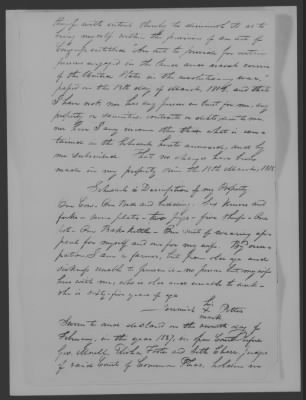 thereof with intent thereby so to diminish it as to
bring myself within the provisions of an act of
Congress entitled "An act to provide for certain
persons engaged in the land and naval service
of the United States in the revolutionary war,"
passed on the 18th day of March 1818, and that
I have not nor has any person in trust for me, any
property or securities, contracts or debts due to me
nor have I any income other than what is con-
tained in the Schedule hereto annexed, and by
me subscribed. That no changes have been
made in my property since the 18th March 1818
Schedule & Description of my Property
One Cow. One Bed and bedding. Six knives and
forks. plates. two pigs. five One
One Bake kettle. One suit of wearing ap-
parel for myself and one for my wife. By occu-
pation I am a farmer, but from old age and
sickness unable to pursue it. no person but my wife
lives with me, who is also unable to work.
she is sixty five years of age
his
Jeremiah X Potter
mark
Sworn to and declared on the day of
February, in the year 1827, in open Court before
Geo. Elisha Foote and Seth judges
of said Court of Common Pleas, holden in